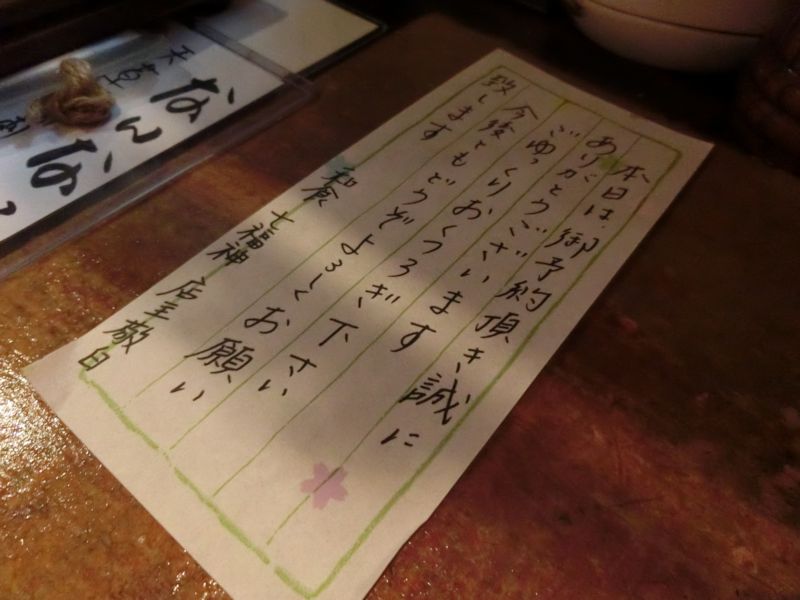 本日は、御予約頂き誠に
ありがとうございます
ごゆっくりおくつろぎ下さい
今後ともどうぞよろしくお願い
致します
和食 七福神 店主敬白
なんなっ
天草